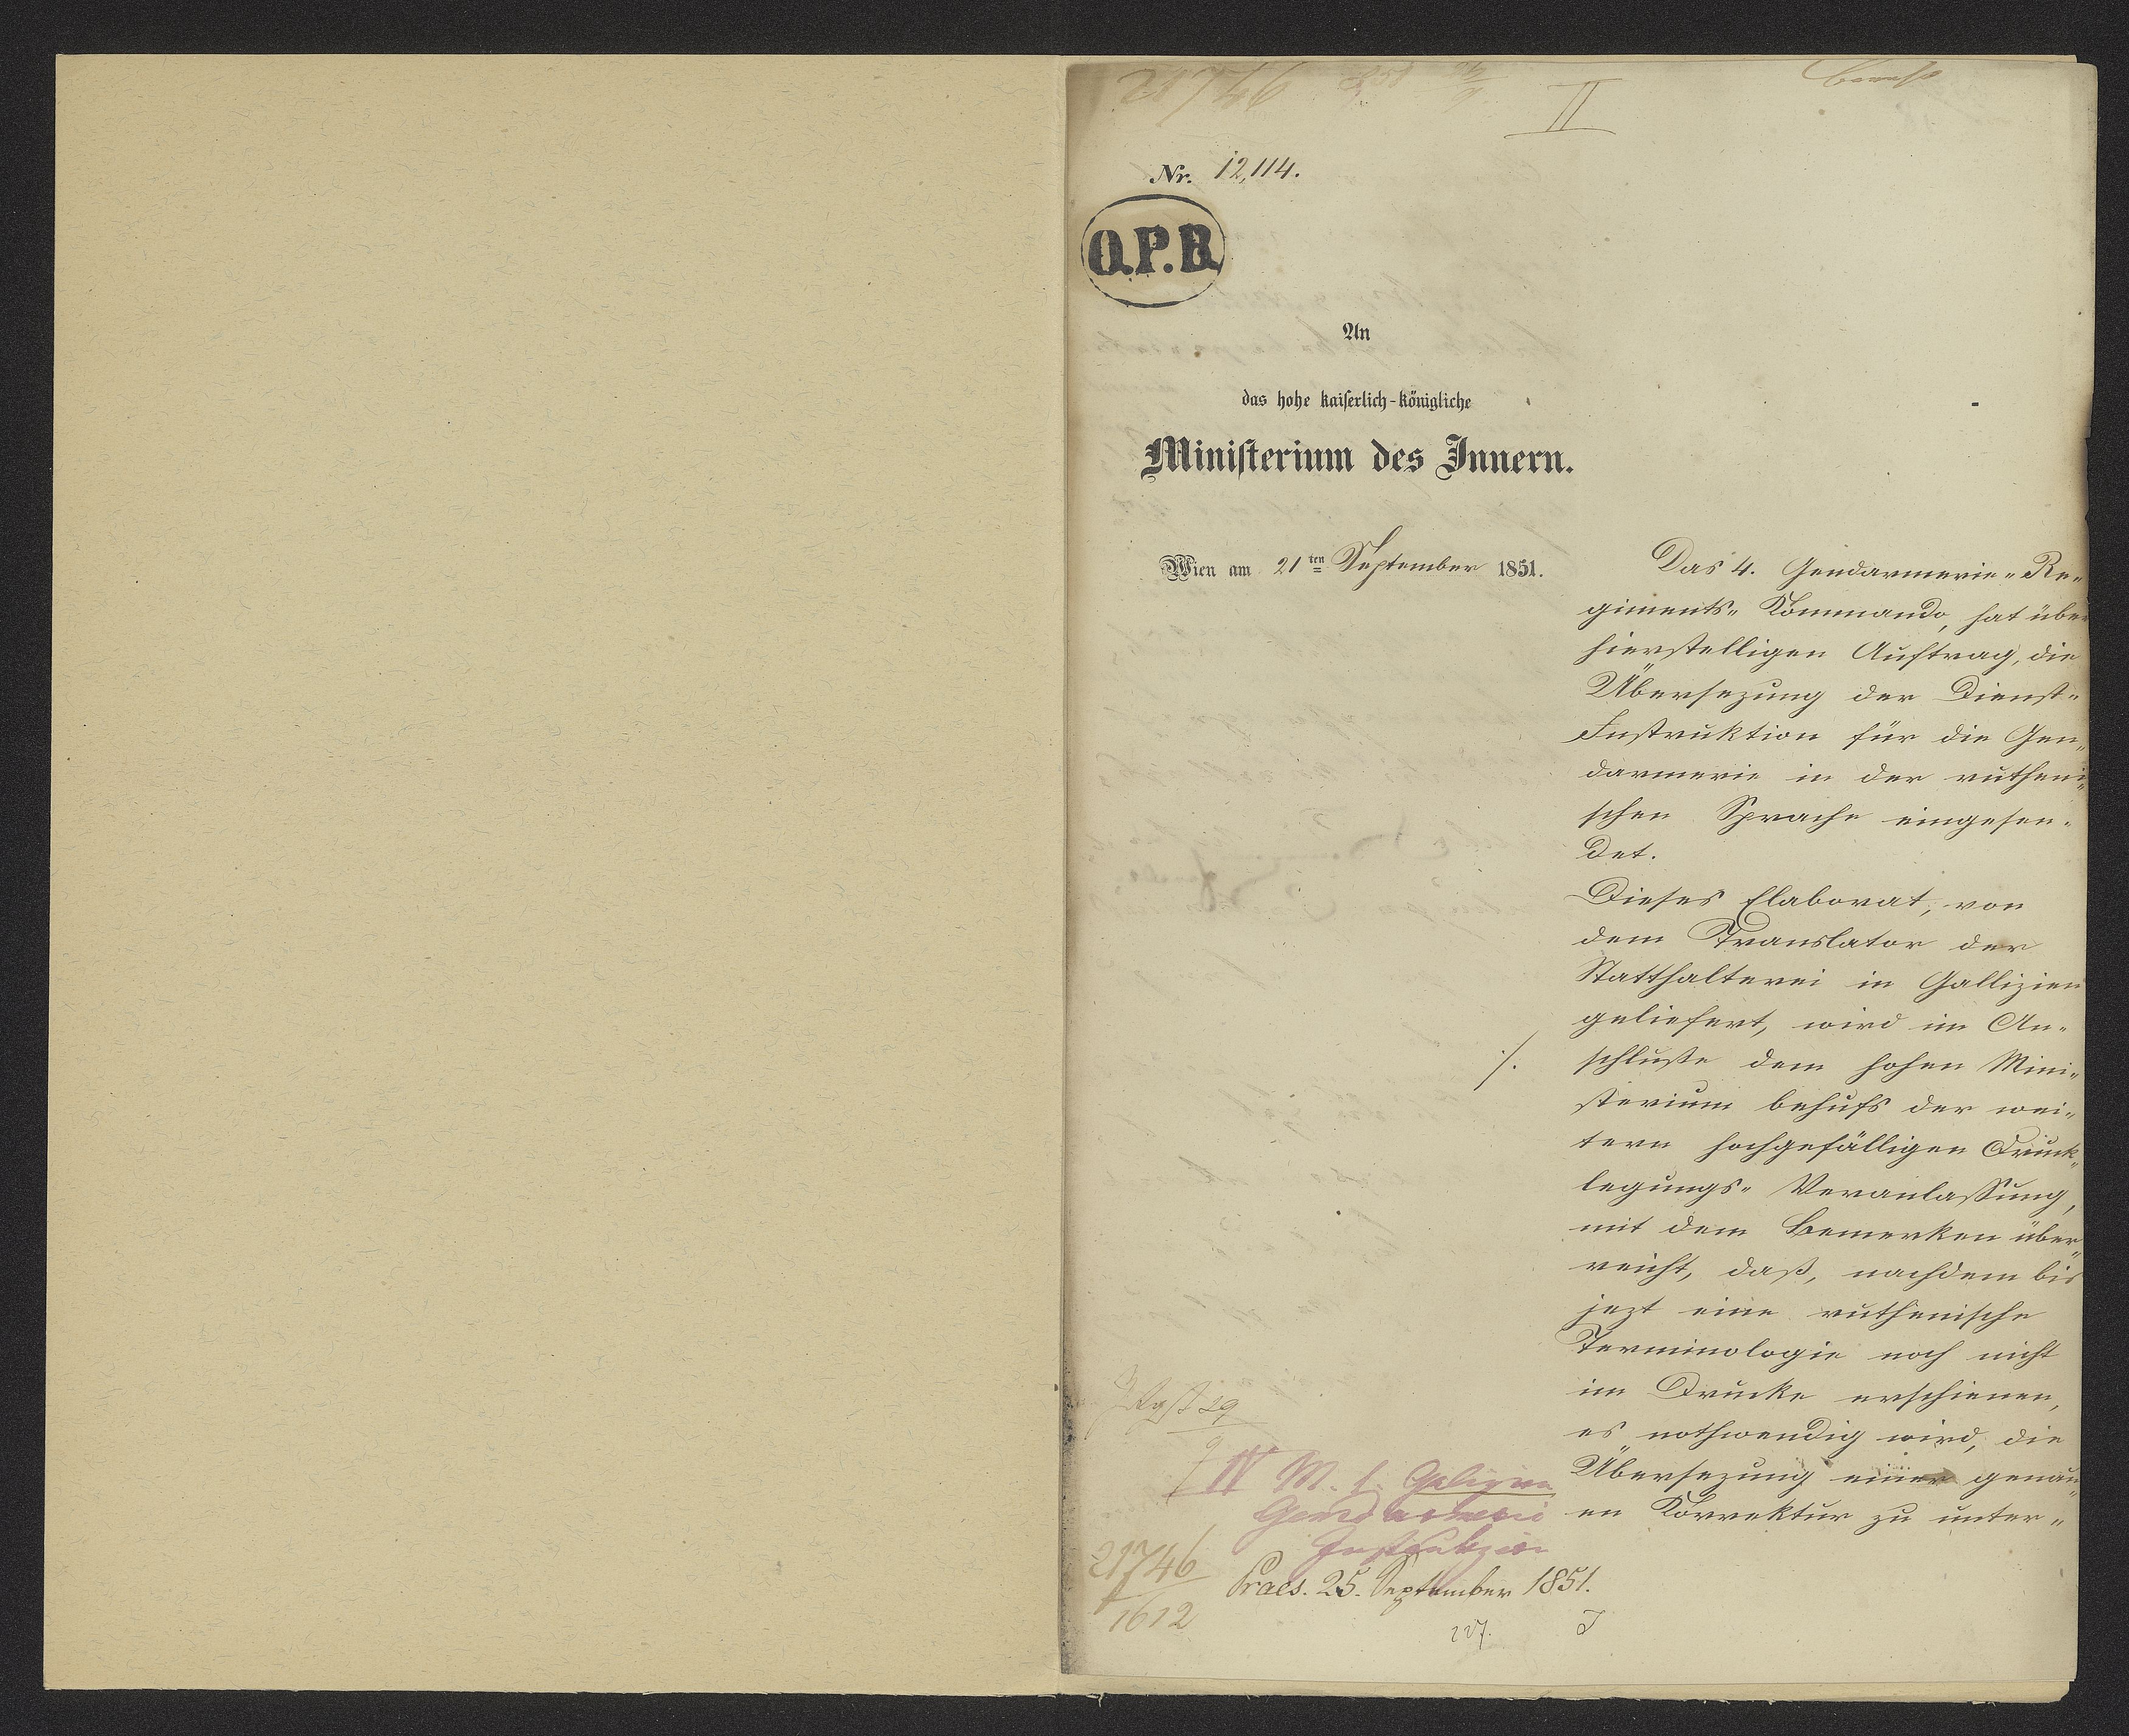 21746
II
Nr. 12,114.
O.P.B.
An
das hohe kaiserlich-königliche
Ministerium des Innern.
Wien am 21ten September 1851.
Das 4. Gendarmerie-Re-
giments-Kommando, hat über
hierstelligen Auftrag, die
Übersezung der Dienst-
Instruktion für die Gen-
darmerie in der rutheni-
schen Sprache eingesen-
det.
Dieses Elaborat, von
dem Translator der
Statthalterei in Gallizien
geliefert, wird im An-
./. schluße dem hohen Mini-
sterium behufs der wei-
tern hochgefälligen Druck-
legungs-Veranlaßung,
mit dem Bemerken über-
reicht, daß, nachdem bis
jezt eine ruthenische
Terminologie noch nicht
im Drucke erschienen,
es nothwendig wird, die
Übersezung einer genau-
en Korrektur zu unter-
29
9
IV M. I. Galizien
Gendarmerie
Instrukzion
21746
1612
Praes. 25. September 1851.
227.